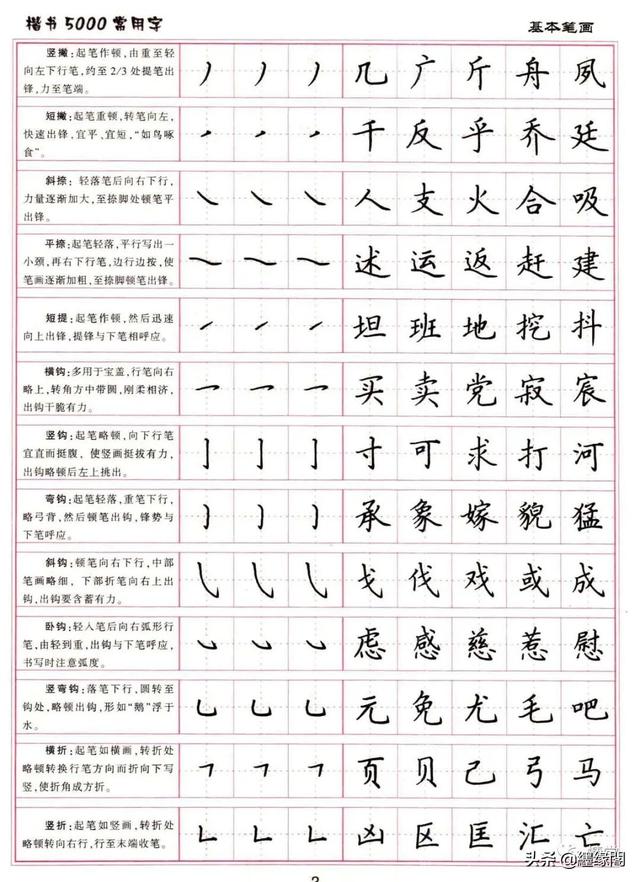 楷书5000常用字
基本笔画
竖撇:起笔作顿,由重至轻
向左下行笔,约至2/3处提笔出
锋,力至笔端。
丿 丿 丿 几 广 斤 舟 夙
短撇:起笔重顿,转笔向左,
快速出锋,宜平、宜短,“如鸟啄
食”。
千 反 乎 乔 廷
斜捺:轻落笔后向右下行,
力量逐渐加大,至捺脚处顿笔平
出锋。
人 支 火 合 吸
平捺:起笔轻落,平行写出一
小颈,再右下行笔,边行边按,使
笔画逐渐加粗,至捺脚顿笔出锋。
述 运 返 赶 建
短提:起笔作顿,然后迅速
向上出锋,提锋与下笔相呼应。
坦 班 地 挖 抖
横钩:多用于宝盖,行笔向右
略上,转角方中带圆,刚柔相济,
出钩干脆有力。
买 卖 党 寂 宸
竖钩:起笔略顿,向下行笔
宜直而挺腹,使竖画挺拔有力,
出钩略顿后左上挑出。
亅 亅 亅 寸 可 求 打 河
弯钩:起笔轻落,重笔下行,
略弓背,然后顿笔出钩,锋势与
下笔呼应。
承 象 嫁 貌 猛
斜钩:顿笔向右下行,中部
笔画略细,下部折笔向右上出
钩,出钩要含蓄有力。
戈 伐 戏 或 成
卧钩:轻入笔后向右弧形行
笔,由轻到重,出钩与下笔呼应,
书写时注意弧度。
虑 感 慈 惹 慰
竖弯钩:落笔下行,圆转至
钩处,略顿出钩,形如“鹅”浮于
水。
乚 乚 乚 元 免 尤 毛 吧
横折:起笔如横画,转折处
略顿转换行笔方向而折向下写
竖,使折角成方折。
页 贝 己 弓 马
竖折:起笔如竖画,转折处
略顿转向右行,行至末端收笔。
凶 区 匡 汇 亡
头条 @缠缘阁